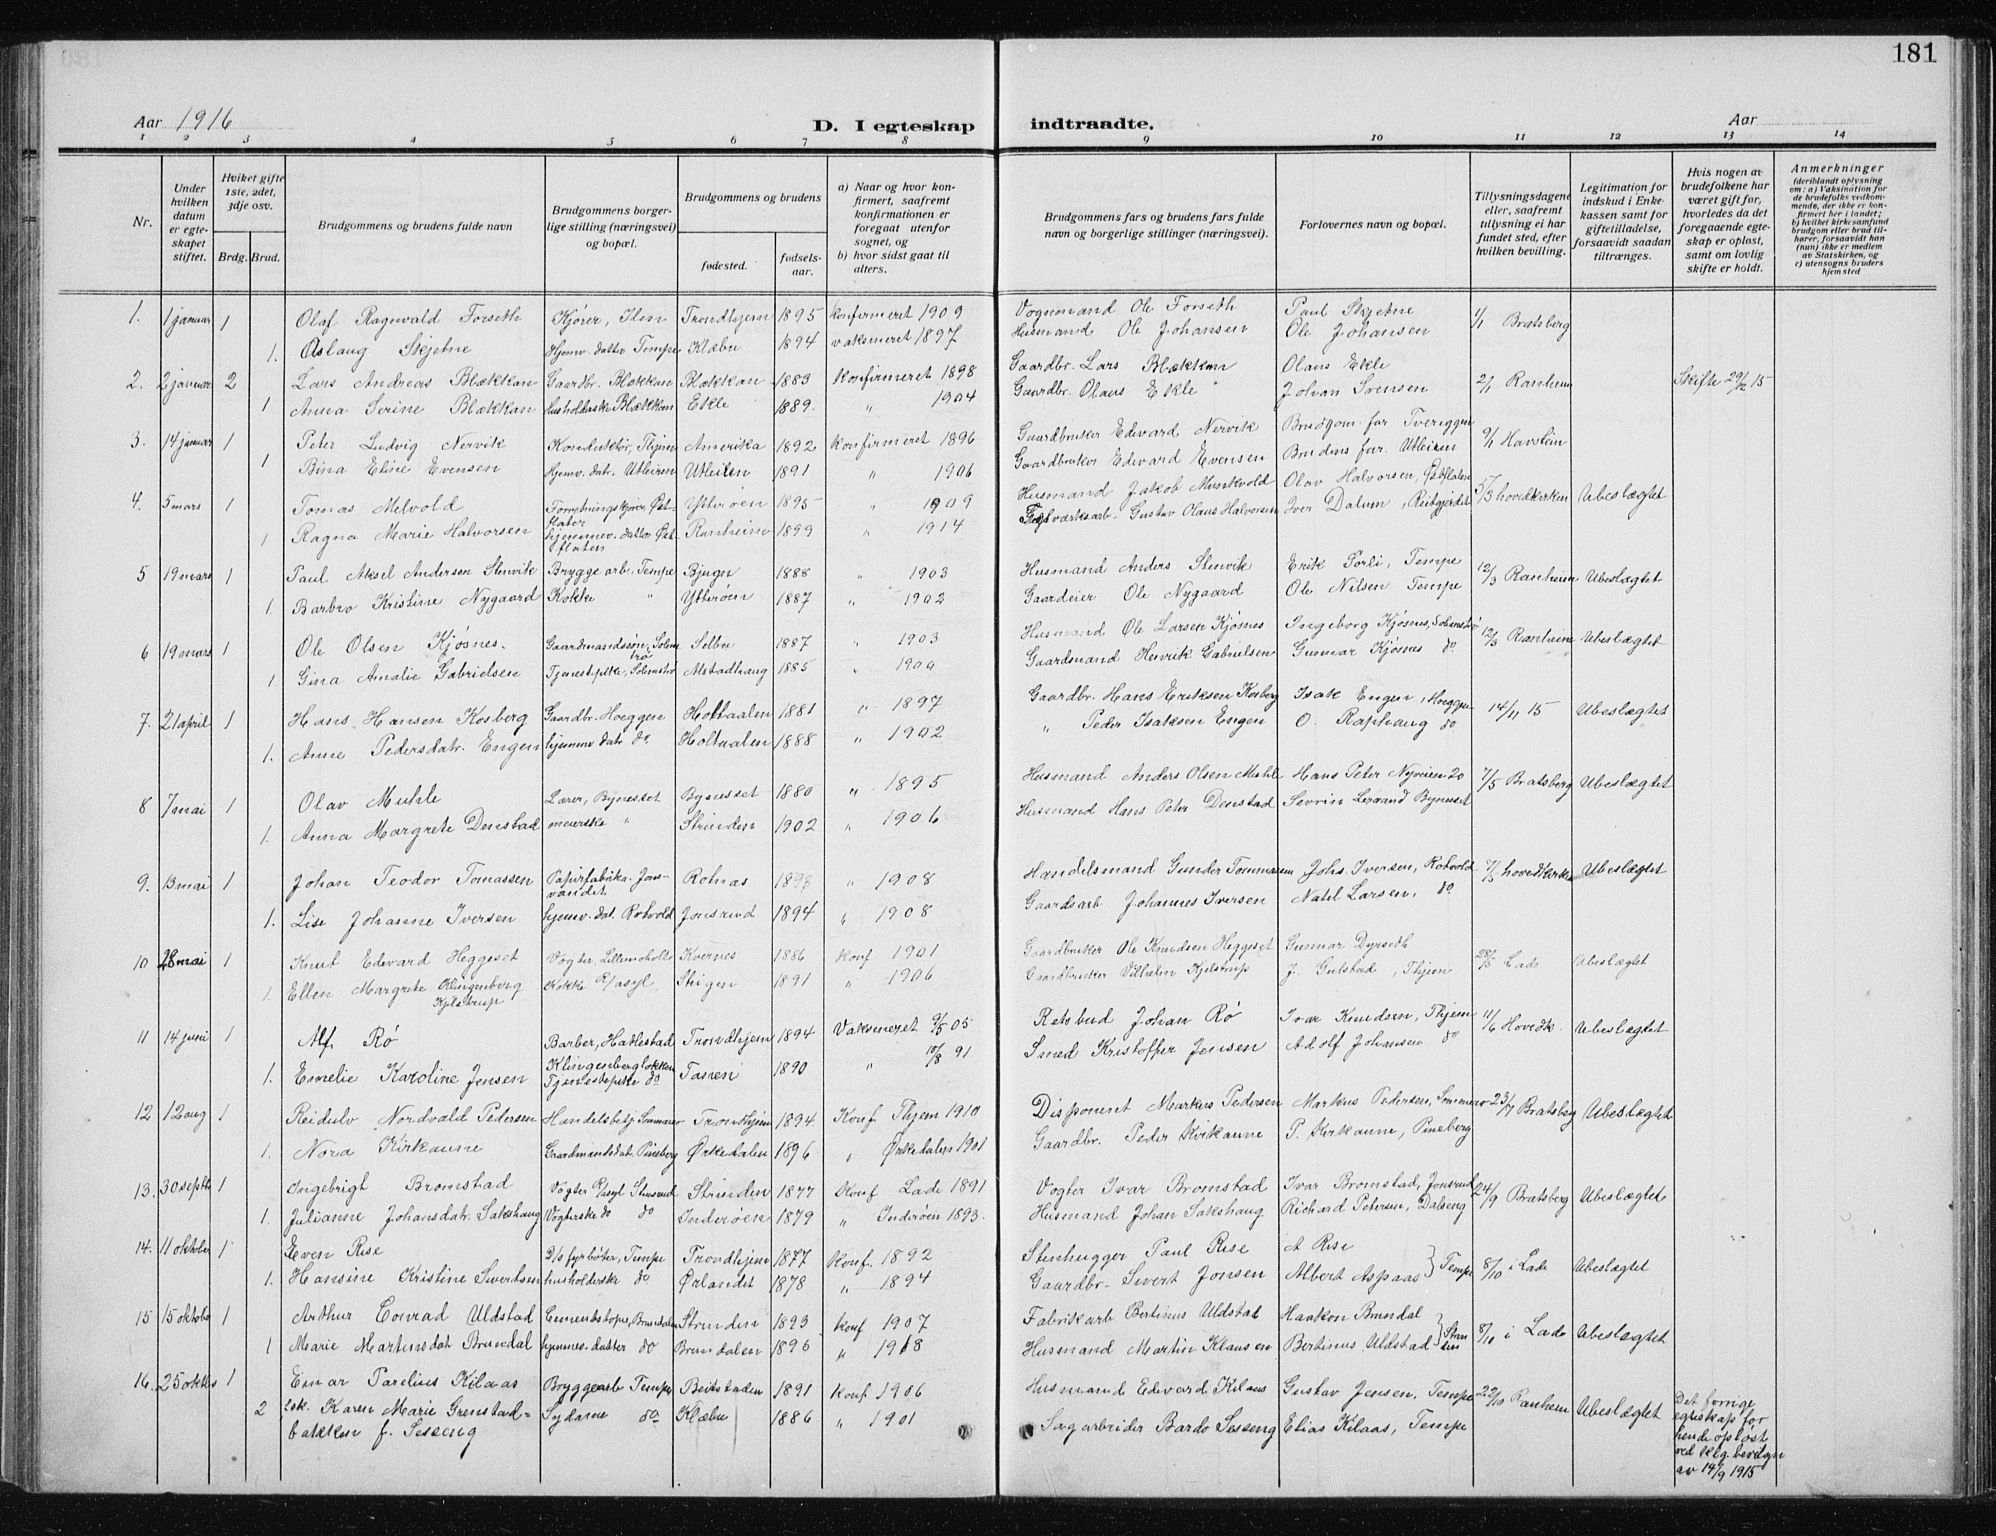 181
Aar 1916
D. I egteskap indtraadte.
Aar
1 2 3 4 5 6 7 8 9 10 11 12 13 14
Nr.
Under hvilken datum er egteskapet stiftet.
Hviket gifte 1ste, 2det, 3dje osv.
Brdg. Brud.
Brudgommens og brudens fulde navn
Brudgommens borgerlige stilling (næringsvei) og bopæl.
Brudgommens og brudens
fødested.
fødselsaar.
a) Naar og hvor konfirmert, saafremt konfirmationen er foregaat utenfor sognet, og
b) hvor sidst gaat til alters.
Brudgommens fars og brudens fars fulde navn og borgerlige stillinger (næringsvei).
Forlovernes navn og bopæl.
Tillysningsdagene eller, saafremt tillysning ei har fundet sted, efter hvilken bevilling.
Legitimation for indskud i Enkekassen samt for giftetilladelse, forsaavidt saadan tiltrænges.
Hvis nogen av brudefolkene har været gift før, hvorledes da det foregaaende egteskap er opløst, samt om lovlig skifte er holdt.
Anmerkninger (deriblandt oplysning om: a) Vaksination for de brudefolks vedkommende, der ikke er konfirmert her i landet; b) hvilket kirkesamfund brudgom eller brud tilhører, forsaavidt han (hun) ikke er medlem av Statskirken, og c) utensogns bruders hjemsted
1. 1 januar 1 Olaf Ragnvald Forseth Kjører, Ilen Trondhjem 1895 konfirmeret 1909 Vognmand Ole Forseth Paul Skjetne 1/1 Bratsberg
1. Aslaug Skjetne Hjemv. datter Tempe Klæbu 1894 vaksineret 1897 Husmand Ole Johansen Ole Johansen
2. 2 januar 2 Lars Andreas Blækkan Gaardbr. Blækkan Blækkan 1883 konfirmeret 1898 Gaardbr. Lars Blækkan Olaus Ekle 2/1 Ranheim Skifte 29/12 15
1 Anna Serine Blækkan Husholderske Blækkan Ekle 1889. " 1904 Gaardbr. Olaus Ekle Johan Svensen
3. 14 januar 1 Peter Ludvig Nervik Konduktør, Thjem Amerika 1892 konfirmeret 1896 Gaardbruker Edvard Nervik Brudgom. far Tvereggen 9/1 Havstein
1 Bina Eline Evensen Hjemv. dat. Utleiren Utleiren 1891 " 1906 Gaardbruker Edvard Evensen Brudens far. Utleiren
4. 5 mars 1 Tomas Melvold Forretningskjører, Østflaten Ytterøen 1895 " 1909 Husmand Jakob Musikvold Olav Halvorsen, Østflaten 5/3 hovedkirken Ubeslægtet
1 Ragna Marie Halvorsen hjemmev. datter Østflaten Ranheim 1899 " 1914 Gustav Olaus Halvorsen Iver Dalum, Reitgjerdet
5 19 mars 1 Paul Aksel Andersen Stenvik Bryggearb. Tempe Bjugn 1888 " 1903 Husmand Anders Stenvik Erik Sorli, Tempe 12/3 Ranheim Ubeslægtet
1. Barbro Kristine Nygaard Kokke " Ytterøen 1887 " 1902 Gaardeier Ole Nygaard Ole Nilsen Tempe
6 19 mars 1 Ole Olsen Kjøsnes. Gaardmandssøn, Solemtrø Selbu 1887 " 1903 Husmand Ole Larsen Kjøsnes Ingeborg Kjøsnes, Solemtrø 12/3 Ranheim Ubeslægtet
1. Gina Amalie Gabrielsen Tjenestepike, Solemtrø Alstadhaug 1885 " 1900 Gaardmand Henrik Gabrielsen Gunnar Kjøsnes do
7. 21 april 1 Hans Hansen Kosberg Gaardbr. Hoeggen Holtaalen 1881 " 1897 Gaardbr. Hans Eriksen Kosberg Isak Engen, Hoeggen 14/11 15 Ubeslægtet
1. Anne Pedersdatr. Engen hjemmv datr do Holtaalen 1888 " 1902 " Peder Isaksen Engen O. Raphaug do
8 7 mai 1 Olav Muhle Lærer, Bynesset Bynesset 1880 " 1895 Husmand Anders Olsen Muhle Hans Peter Nyveien 20 7/5 Bratsberg Ubeslægtet
1. Anna Margrete Denstad meierske " Strinden 1902 " 1906 Husmand Hans Peter Denstad Sevrin Leraand Bynesset
9. 13 mai 1 Johan Teodor Tomassen Papirfabrika. Jonsvandet Rotnas 1893 " 1908 Handelsmand Gunder Tommassen Johs. Iversen, Rotvold 7/5 hovedkirken Ubeslægtet
1. Lise Johanne Iversen hjemv. dat. Rotvold Jonsrud 1894 " 1908 Gaardsarb Johannes Iversen Natel Larsen, do
10 28 mai 1 Knut Edevard Heggeset Vogter, Lillemoholt Kvernes 1886 konf 1901 Gaardbruker Ole Knudsen Heggeset Gunnar Dyrseth 28/5 Lade Ubeslægtet
1. Ellen Margrete Klingenberg Kjelstrup Kokke R/asyl Steigen 1891 " 1906 Gaardbruker Vilhelm Kjelstrup J. Gulstad, Thjem
11 14 juni 1 Alf. Rø Barber, Hatlestad Trondhjem 1894 Vaksineret 9/5 05 Retsbud Johan Rø Ivar Knudsen, Thjem 11/6 Hovedk. Ubeslægtet
1. Emelie Karoline Jensen Klingenbergløkken Tjenestepike do Tanen 1890 " 10/8 91 Smed Kristoffer Jensen Adolf Johansen do
12 12 aug 1 Reidulv Nordvald Pedersen Handelsbetj Sommero Trondhjem 1894. Konf Thjem 1910 Disponent Markus Pedersen Markus Pedersen, Sommero 23/7 Bratsberg Ubeslægtet
1. Nora Kirkaune Gaardmandsdat. Pineberg Ørkedalen 1896 " Ørkedalen 1901 Gaardbr. Peder Kirkaune P. Kirkaune, Pineberg
13. 30 septbr 1 Ingebrigt Bromstad Vogter R/asyl Strinden 1877 Konf Lade 1891 Vogter Ivar Bromstad Ivar Bromstad, Jonsrud 24/9 Bratsberg Ubeslægtet
1. Julianne Johansdatr. Sakshaug Vogterske do do Inderøen 1879 " Inderøen 1893. Husmand Johan Sakshaug Richard Petersen, Dalseng
14. 11 oktober 1 Even Rise D/s fyrbøter, Tempe Trondhjem 1877 konf. 1892 Stenhugger Paul Rise A Rise 8/10 i Lade Ubeslægtet
1. Hansine Kristine Sivertsen husholderske do Ørlandet 1878 " 1894 Gaardbr. Sivert Jonsen Albert Aspaas } Tempe
15 15 oktober 1 Arthur Conrad Uldstad Cementstøper, Brundalen Strinden 1893 konf 1907 Fabrikarb Bertinus Uldstad Haakon Brundal 8/10 i Lade Ubeslægtet
1 Marie Martinsdat Brundal hjemmev. datter do Brundalen 1895 " 1918 Husmand Martin Klausen Bertinus Uldstad } Strinden
16. 25 oktbr 1 Einar Parelius Kilaas Bryggearb Tempe Beitstaden 1891 konf 1906 Husmand Edevard Kilaas Gustav Jensen, Tempe 22/10 Ranheim Ubeslægtet
2 Karen Marie Grenstadbakken f. Seseng Sydame do Klæbu 1886 " 1901 Sagarbeider Bardo Seseng Elias Kilaas, Tempe
Det forrige egteskap for hende opløst ved klg. bevilgn av 14/9 1915